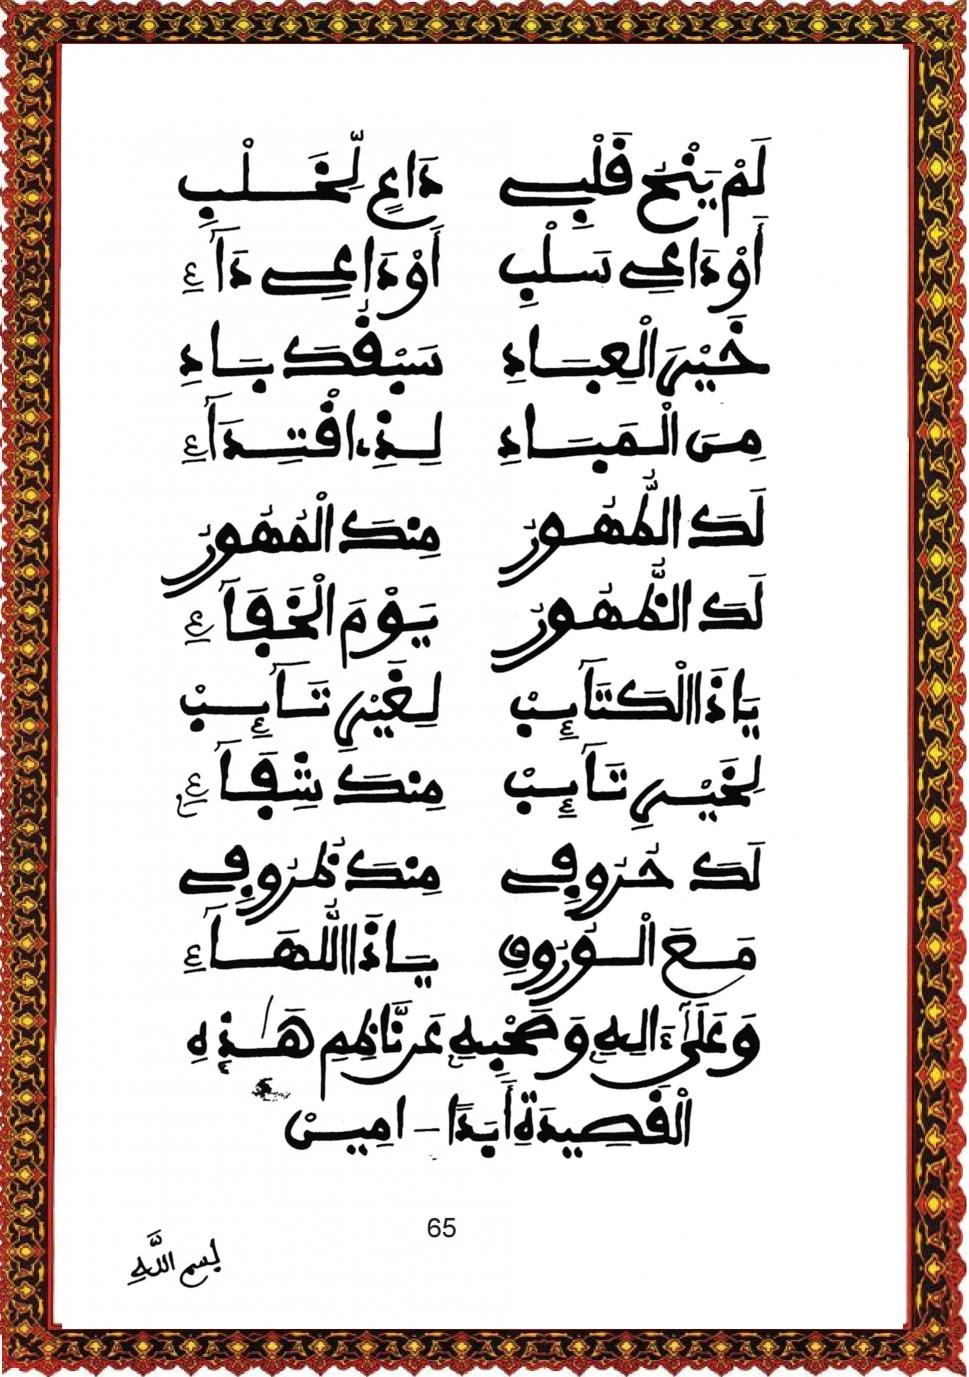 لَمْ يَنْحُ قَلْبِي دَاعٍ لِّخَلْبِ
أَوْ دَاعِي سَلْبِ أَوْ دَاعِي دَآءِ
خَيْرَ الْعِبَادِ سَبْقُكَ بَادِ
مِنَ الْمَبَادِ لِذِي اقْتِدَآءِ
لَكَ الطُّهُورُ مِنْكَ الْمُهُورُ
لَكَ الظُّهُورُ يَوْمَ الْخَفَآءِ
يَاذَا الْكَتَآئِبْ لِغَيْرِ تَآئِبْ
لِخَيْرِ تَآئِبْ مِنْكَ شِفَآءِ
لَكَ حُرُوفِي مِنْكَ ظُرُوفِي
مَعَ الْوُرُوقِ يَاذَا اللُّهَآءِ
وَعَلَىٰ ءَالِهِ وَصَحْبِهِ عَن نَّاظِمِ هَٰذِهِ
الْقَصِيدَةِ أَبَدًا - امِينْ
65
بسم اللَّهِ